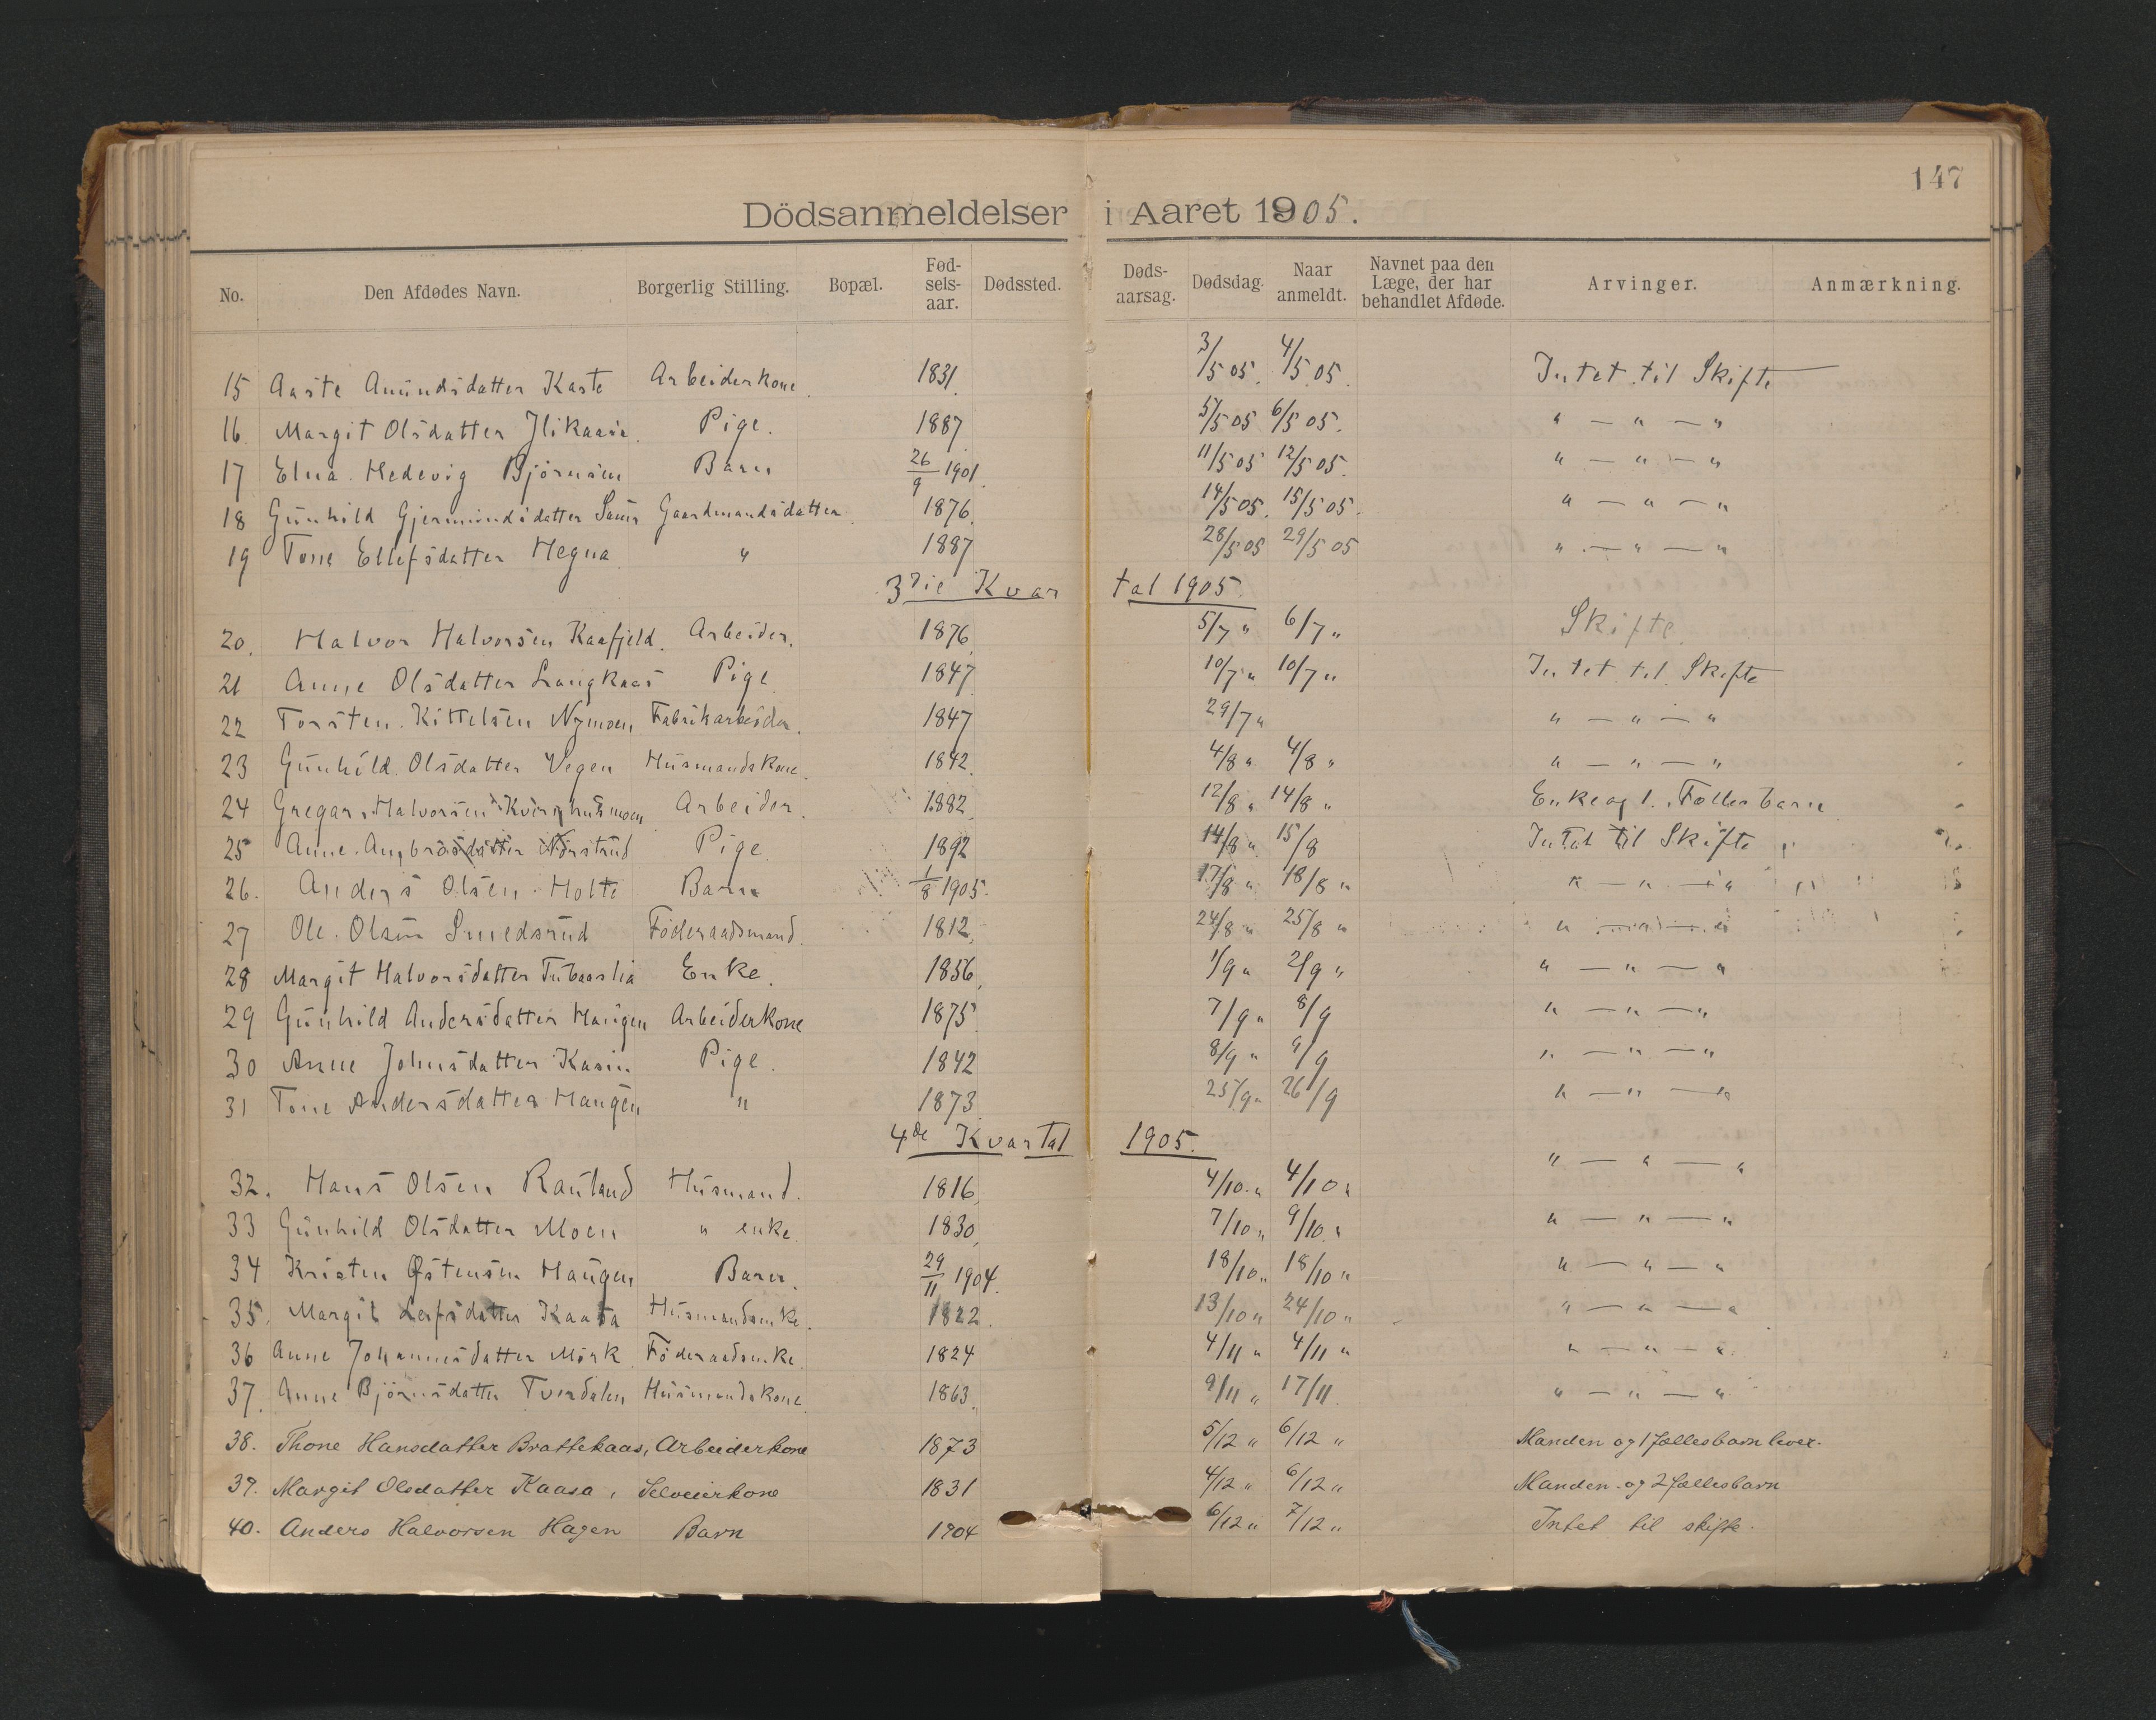 147
Dödsanmeldelser i Aaret 1905.
No. Den Afdødes Navn. Borgerlig Stilling. Bopæl. Fød-sels-aar. Dødssted. Døds-aarsag. Dødsdag. Naar anmeldt. Navnet paa den Læge, der har behandlet Afdøde. Arvinger. Anmærkning.
15 Aaste Amundsdatter Kaste Arbeiderkone 1831. 3/5 05. 4/5 05. Intet til Skifte
16. Margit Olsdatter Pige. 1887 5/5 05 6/5 05. " — " — "
17 Elna Hedevig Björnsen Barn 26/9 1901. 11/5 05 12/5 05. " — " — "
18 Gunhild Gjermundsdatter Gaardmandsdatter 1876. 14/5 05. 15/5 05. " — " — "
19 Tone Ellefsdatter Hegna " 1887 28/5 05 29/5 05 " — " — "
3die Kvartal 1905.
20. Halvor Halvorsen Kaafjeld. Arbeider. 1876. 5/7 " 6/7 " Skifte.
21 Anne Olsdatter Langkaas Pige 1847 10/7 " 10/7 " Intet til Skifte
22 Torsten Kittelsen Nymoen Fabrikarbeider. 1847 29/7 " " — " — "
23 Gunhild Olsdatter Vegen Husmandskone. 1842. 4/8 " 4/8 " " — " — "
24 Gregar Halvorsen Arbeider. 1882. 12/8 " 14/8 " Enke og 1. Fællesbarn
25 Anne Pige. 1892 14/8 " 15/8 Intet til Skifte
26. Anders Olsen Holte Barn 1/8 1905. 17/8 " 18/8 " " — " — "
27 Ole Olsen Smedsrud Föderaadsmand. 1812. 24/8 " 25/8 " " — " — "
28 Margit Halvorsdatter Enke. 1856. 1/9 " 2/9 " " — " — "
29 Gunhild Andersdatter Haugen Arbeiderkone 1875. 7/9 " 8/9 " — " — "
30 Anne Johnsdatter Kasin Pige. 1842 8/9 " 9/9 " — " — "
31 Tone Andersdatter Haugen " 1873. 25/9 " 26/9 " — " — "
4de Kvartal 1905.
32. Hans Olsen Rauland Husmand. 1816. 4/10 " 4/10 " " — " — "
33 Gunhild Olsdatter Moen " enke. 1830. 7/10 " 9/10 " " — " — "
34 Kristen Østensen Haugen Barn. 29/11 1904. 18/10 " 18/10 " " — " — "
35. Margit Leifsdatter Kaasa Husmandsenke. 1822. 13/10 " 24/10 " " — " — "
36 Anne Johannesdatter Mörk. Föderaadsenke. 1824 4/11 " 4/11 " " — " — "
37. Anne Björnsdatter Tverdalen Husmandskone. 1863. 9/11 " 17/11. " — " — "
38. Thone Hansdatter Brattekaas, Arbeiderkone 1873 5/12 " 6/12 " Manden og 1 fællesbarn lever.
39. Margit Olsdatter Kaasa, Selveierkone 1831 4/12 " 6/12 " Manden og 2 fællesbarn
40. Anders Halvorsen Hagen Barn 1904 6/12 " 7/12 " Intet til skifte.